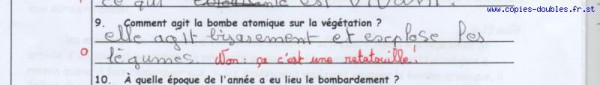 www.copies-doubles.fr.st
ce qui est vivant.
9. Comment agit la bombe atomique sur la végétation ?
elle agit bisarement et esxplose les
0 légumes. Non: ça c'est une ratatouille!
10. À quelle époque de l'année a eu lieu le bombardement ?